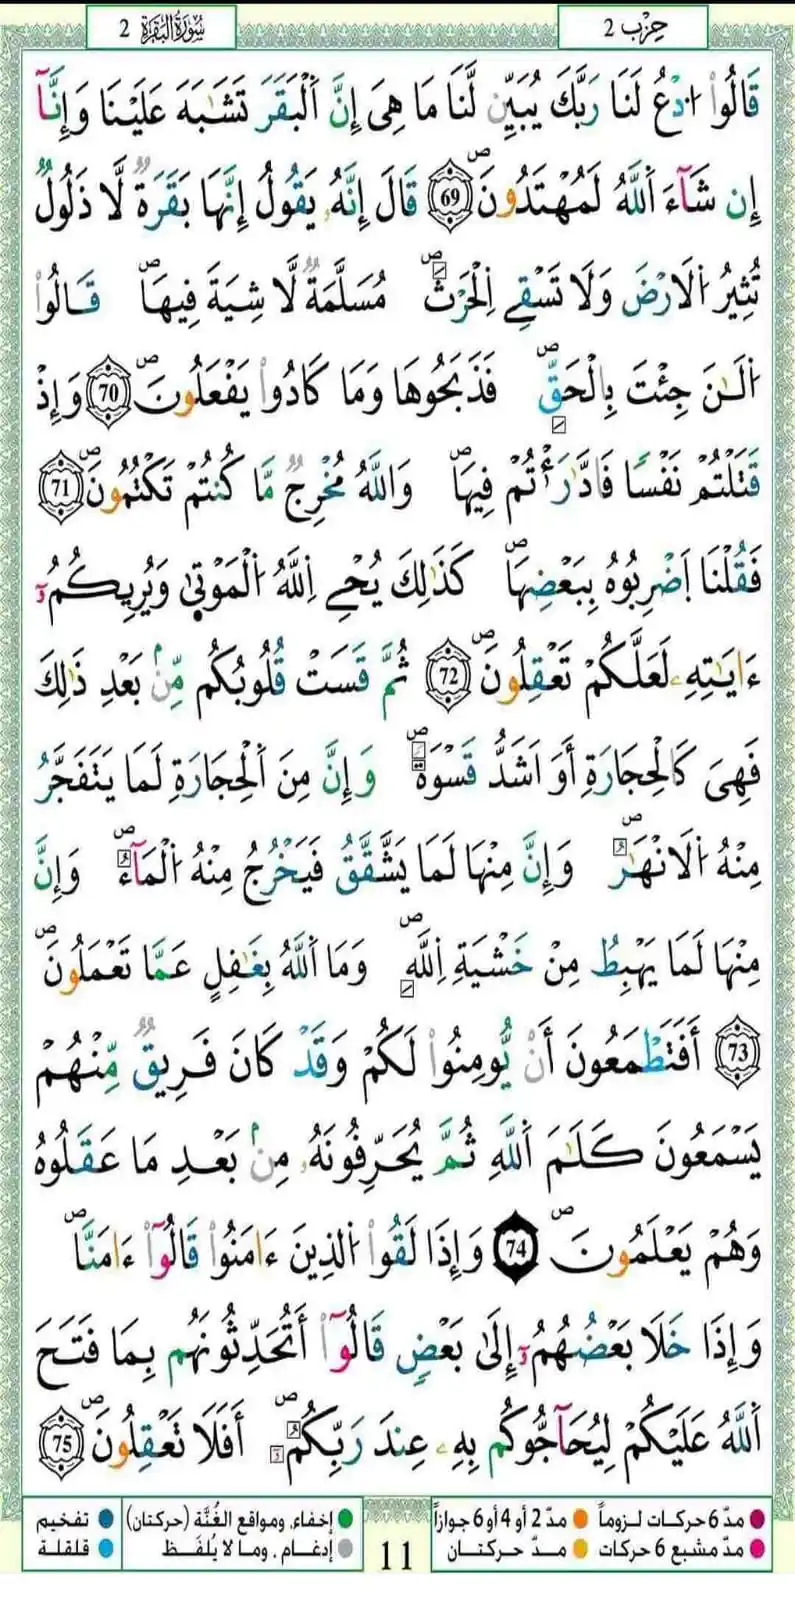 حِزْب 2
سُورَةُ الْبَقَرَةِ 2
قَالُواْ اُ۟دْعُ لَنَا رَبَّكَ يُبَيِّن لَّنَا مَا هِيَ إِنَّ اَ۬لْبَقَرَ تَشَٰبَهَ عَلَيْنَا وَإِنَّآ
إِن شَآءَ اَ۬للَّهُ لَمُهْتَدُونَۖ 69 قَالَ إِنَّهُۥ يَقُولُ إِنَّهَا بَقَرَةٞ لَّا ذَلُولٞ
تُثِيرُ اُ۬لَارْضَ وَلَا تَسْقِے اِ۬لْحَرْثَۖ مُسَلَّمَةٞ لَّا شِيَةَ فِيهَاۖ قَالُواْ
اُ۬لَٰنَ جِئْتَ بِالْحَقِّۖ فَذَبَحُوهَا وَمَا كَادُواْ يَفْعَلُونَۖ 70 وَإِذْ
قَتَلْتُمْ نَفْساٗ فَادَّٰرَْٰٔتُمْ فِيهَاۖ وَاللَّهُ مُخْرِجٞ مَّا كُنتُمْ تَكْتُمُونَۖ 71
فَقُلْنَا اَ۪ضْرِبُوهُ بِبَعْضِهَاۖ كَذَٰلِكَ يُحْےِ اِ۬للَّهُ اُ۬لْمَوْتَىٰ وَيُرِيكُمُۥٓ
ءَايَٰتِهِۦ لَعَلَّكُمْ تَعْقِلُونَۖ 72 ثُمَّ قَسَتْ قُلُوبُكُم مِّنۢ بَعْدِ ذَٰلِكَ
فَهِيَ كَالْحِجَارَةِ أَوَ اَشَدُّ قَسْوَةٗۖ وَإِنَّ مِنَ اَ۬لْحِجَارَةِ لَمَا يَتَفَجَّرُ
مِنْهُ اُ۬لَانْهَٰرُۖ وَإِنَّ مِنْهَا لَمَا يَشَّقَّقُ فَيَخْرُجُ مِنْهُ اُ۬لْمَآءُۖ وَإِنَّ
مِنْهَا لَمَا يَهْبِطُ مِنْ خَشْيَةِ اِ۬للَّهِۖ وَمَا اَ۬للَّهُ بِغَٰفِلٍ عَمَّا تَعْمَلُونَۖ
73 أَفَتَطْمَعُونَ أَنْ يُّومِنُواْ لَكُمْ وَقَدْ كَانَ فَرِيقٞ مِّنْهُمْ
يَسْمَعُونَ كَلَٰمَ اَ۬للَّهِ ثُمَّ يُحَرِّفُونَهُۥ مِنۢ بَعْدِ مَا عَقَلُوهُ
وَهُمْ يَعْلَمُونَۖ 74 وَإِذَا لَقُواْ اُ۬لذِينَ ءَامَنُواْ قَالُوٓاْ ءَامَنَّاۖ
وَإِذَا خَلَا بَعْضُهُمُۥٓ إِلَىٰ بَعْضٖ قَالُوٓاْ أَتُحَدِّثُونَهُم بِمَا فَتَحَ
اَ۬للَّهُ عَلَيْكُمْ لِيُحَآجُّوكُم بِهِۦ عِندَ رَبِّكُمُۥٓۖ أَفَلَا تَعْقِلُونَۖ 75
مدّ 6 حركات لـزوماً مدّ 2 أو 4 أو 6 جوازاً
مدّ مشبع 6 حركات مـدّ حركـتـان
إخفاء، ومواقع الغُنَّة (حركتان) تفخيم
إدغـام، ومـا لا يُلفَـظ قلقلة
11